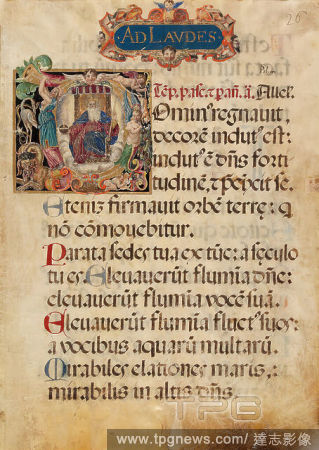 AD LAVDES
26
Te͞p. pasc. et p̄añ. ā. Allel.
Ominꝰ regnauit,
decorē indutꝰ est:
indutꝰ ē dn̄s forti
tudinē, et p̄cīxit se.
Etenīꝫ firmauit orbē terrę: q
nō cōmouebitur.
Parata sedes tua ex tūc: a sęculo
tu es. Eleuauerūt flumīa dn̄e:
eleuauerūt flumīa vocē suā.
Eleuauerūt flumīa fluctꝰ suos:
a vocibus aquarū multarū.
Mirabiles elationes maris,:
mirabilis in altis dn̄s.
TPG
www.tpgnews.com / 達志影像